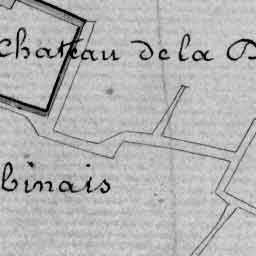 Chateau de la
binais